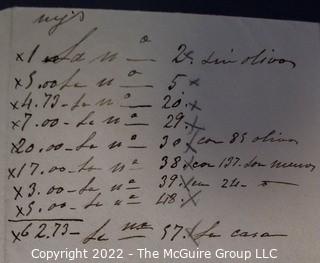 x1 — La nª — 2. sin olivos
x5.00 La nª — 5 x
x4.73 — La nª — 20. x
x7.00 — La nª — 29. x
x20.00 — La nª — 30 x con 85 olivos
x17.00 — La nª — 38. x con 137. son menos
x3.00 — La nª — 39. x con 24 —
x5.00 — La nª — 48. x
x62.73 — La nª — 57. x La casa
Copyright 2022 - The McGuire Group LLC